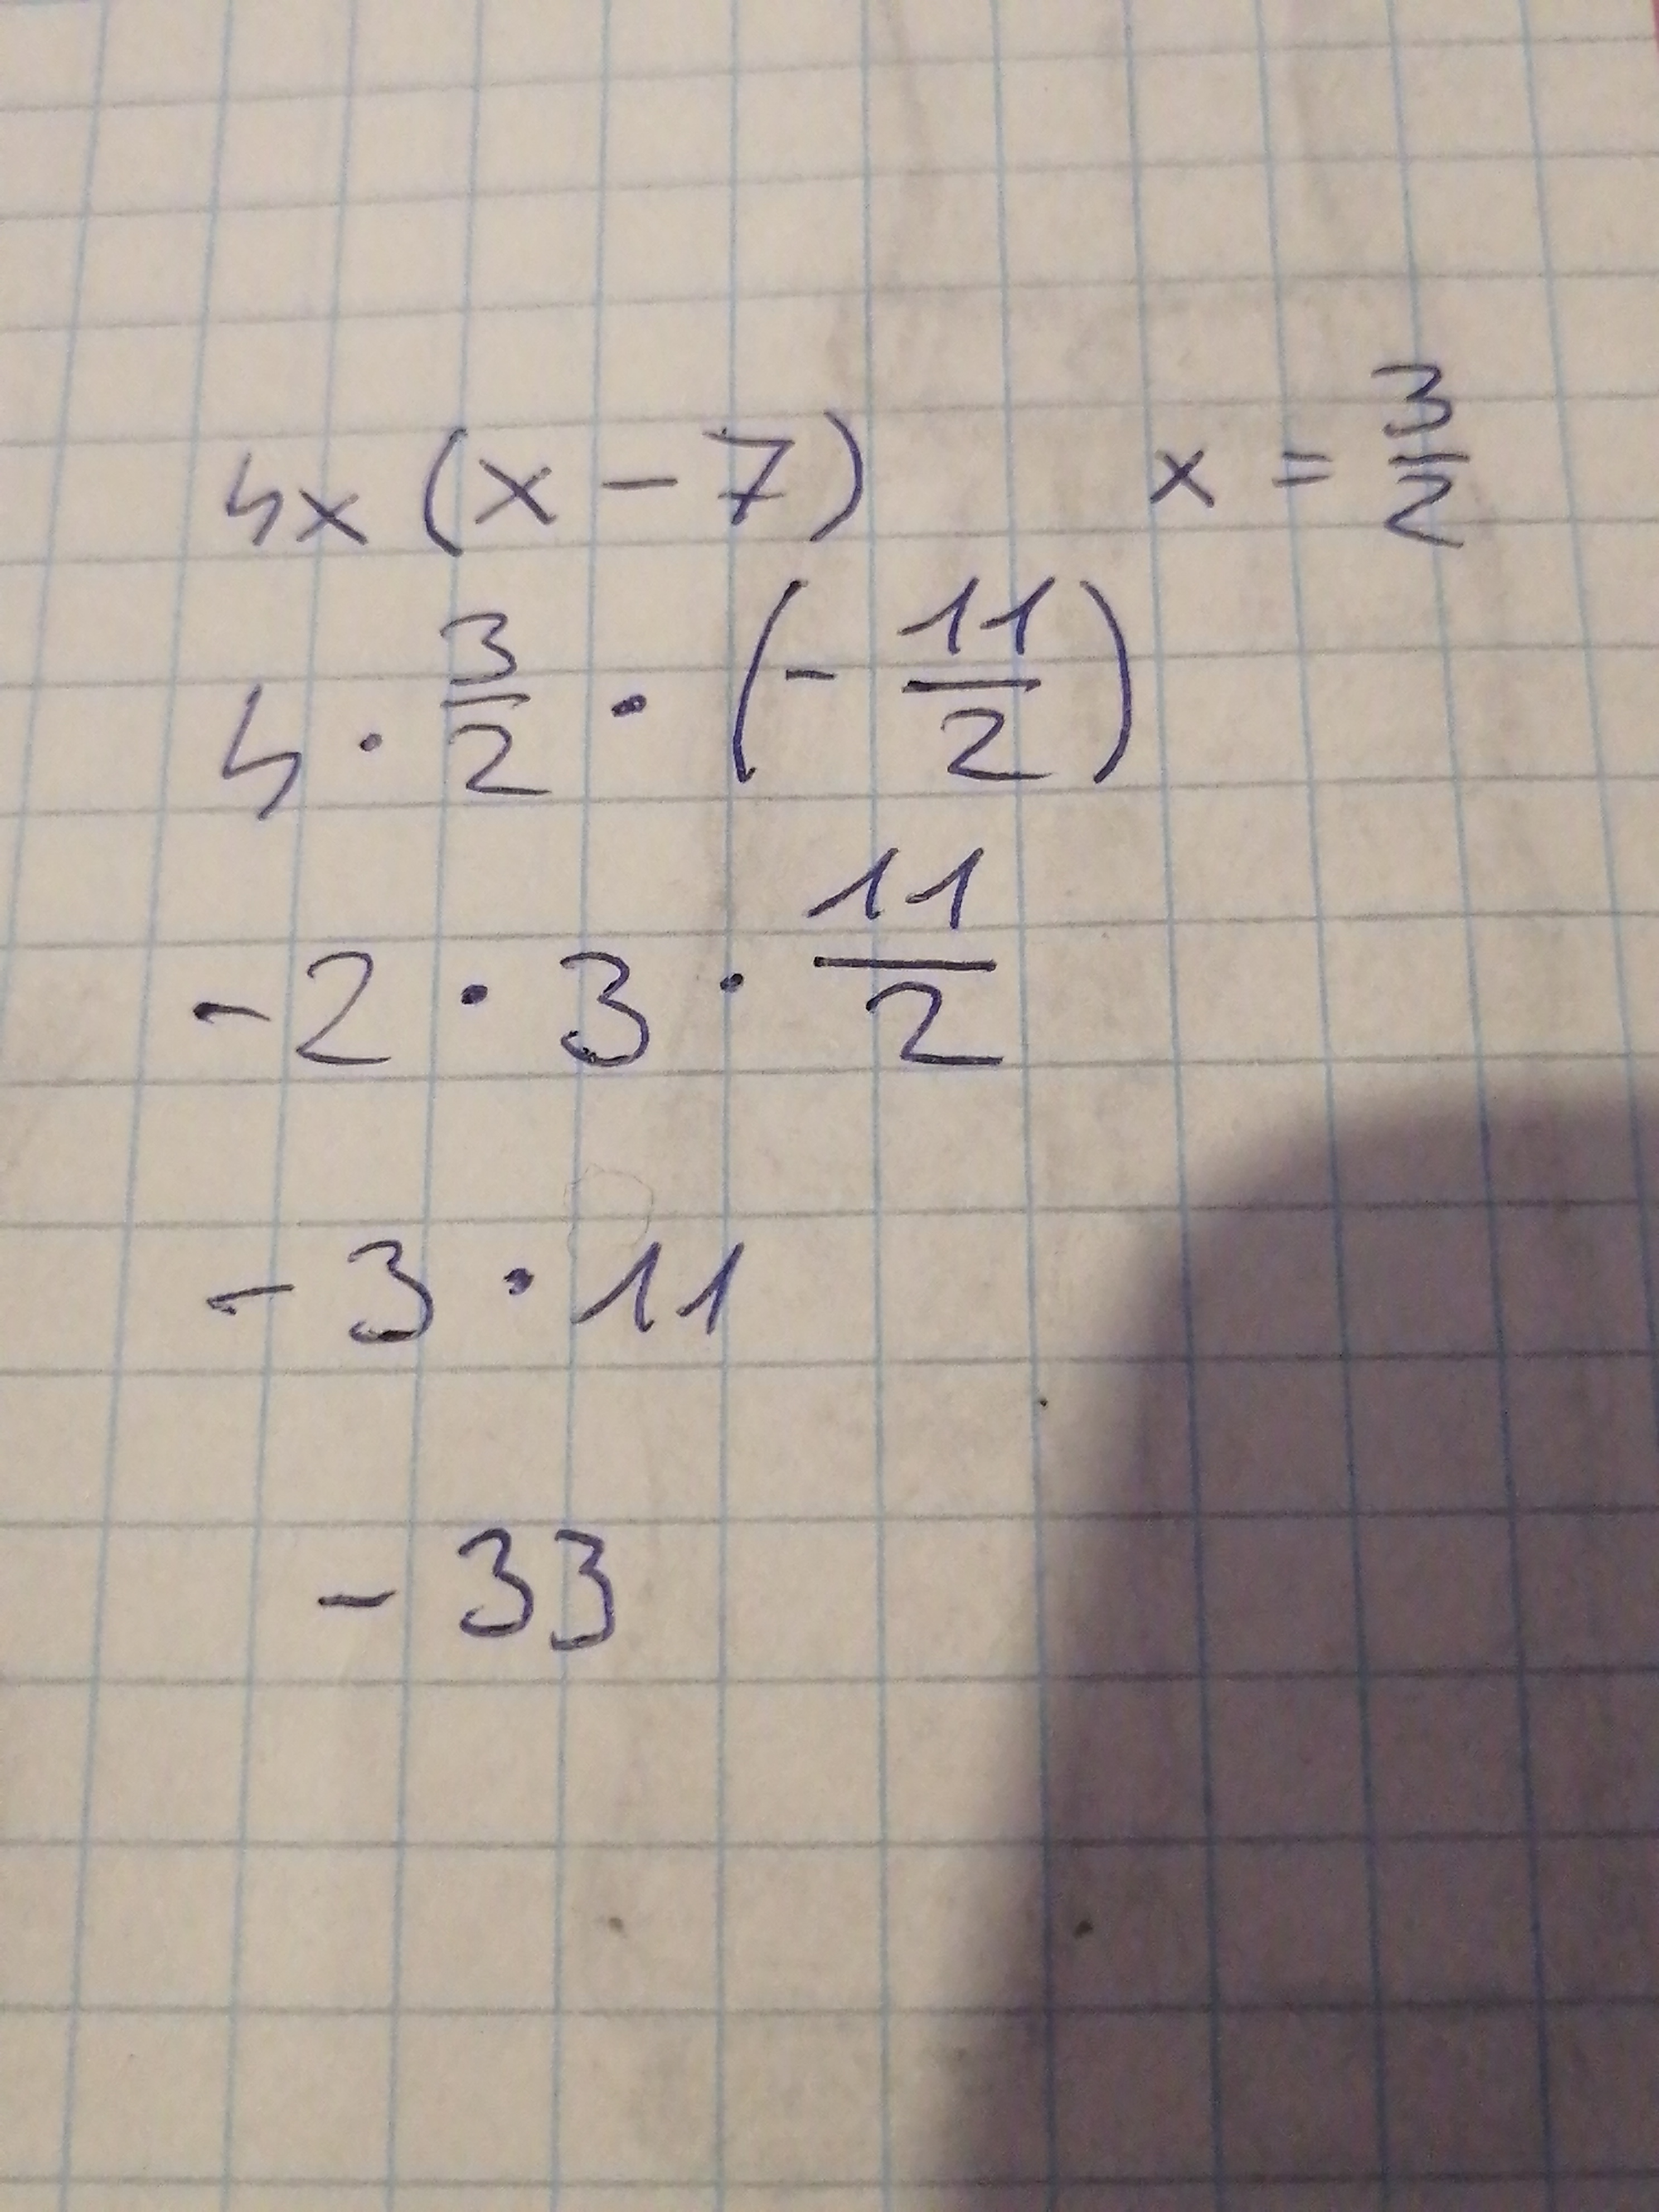 4x (x - 7) x = 3/2
4 · 3/2 · (- 11/2)
-2 · 3 · 11/2
-3 · 11
-33